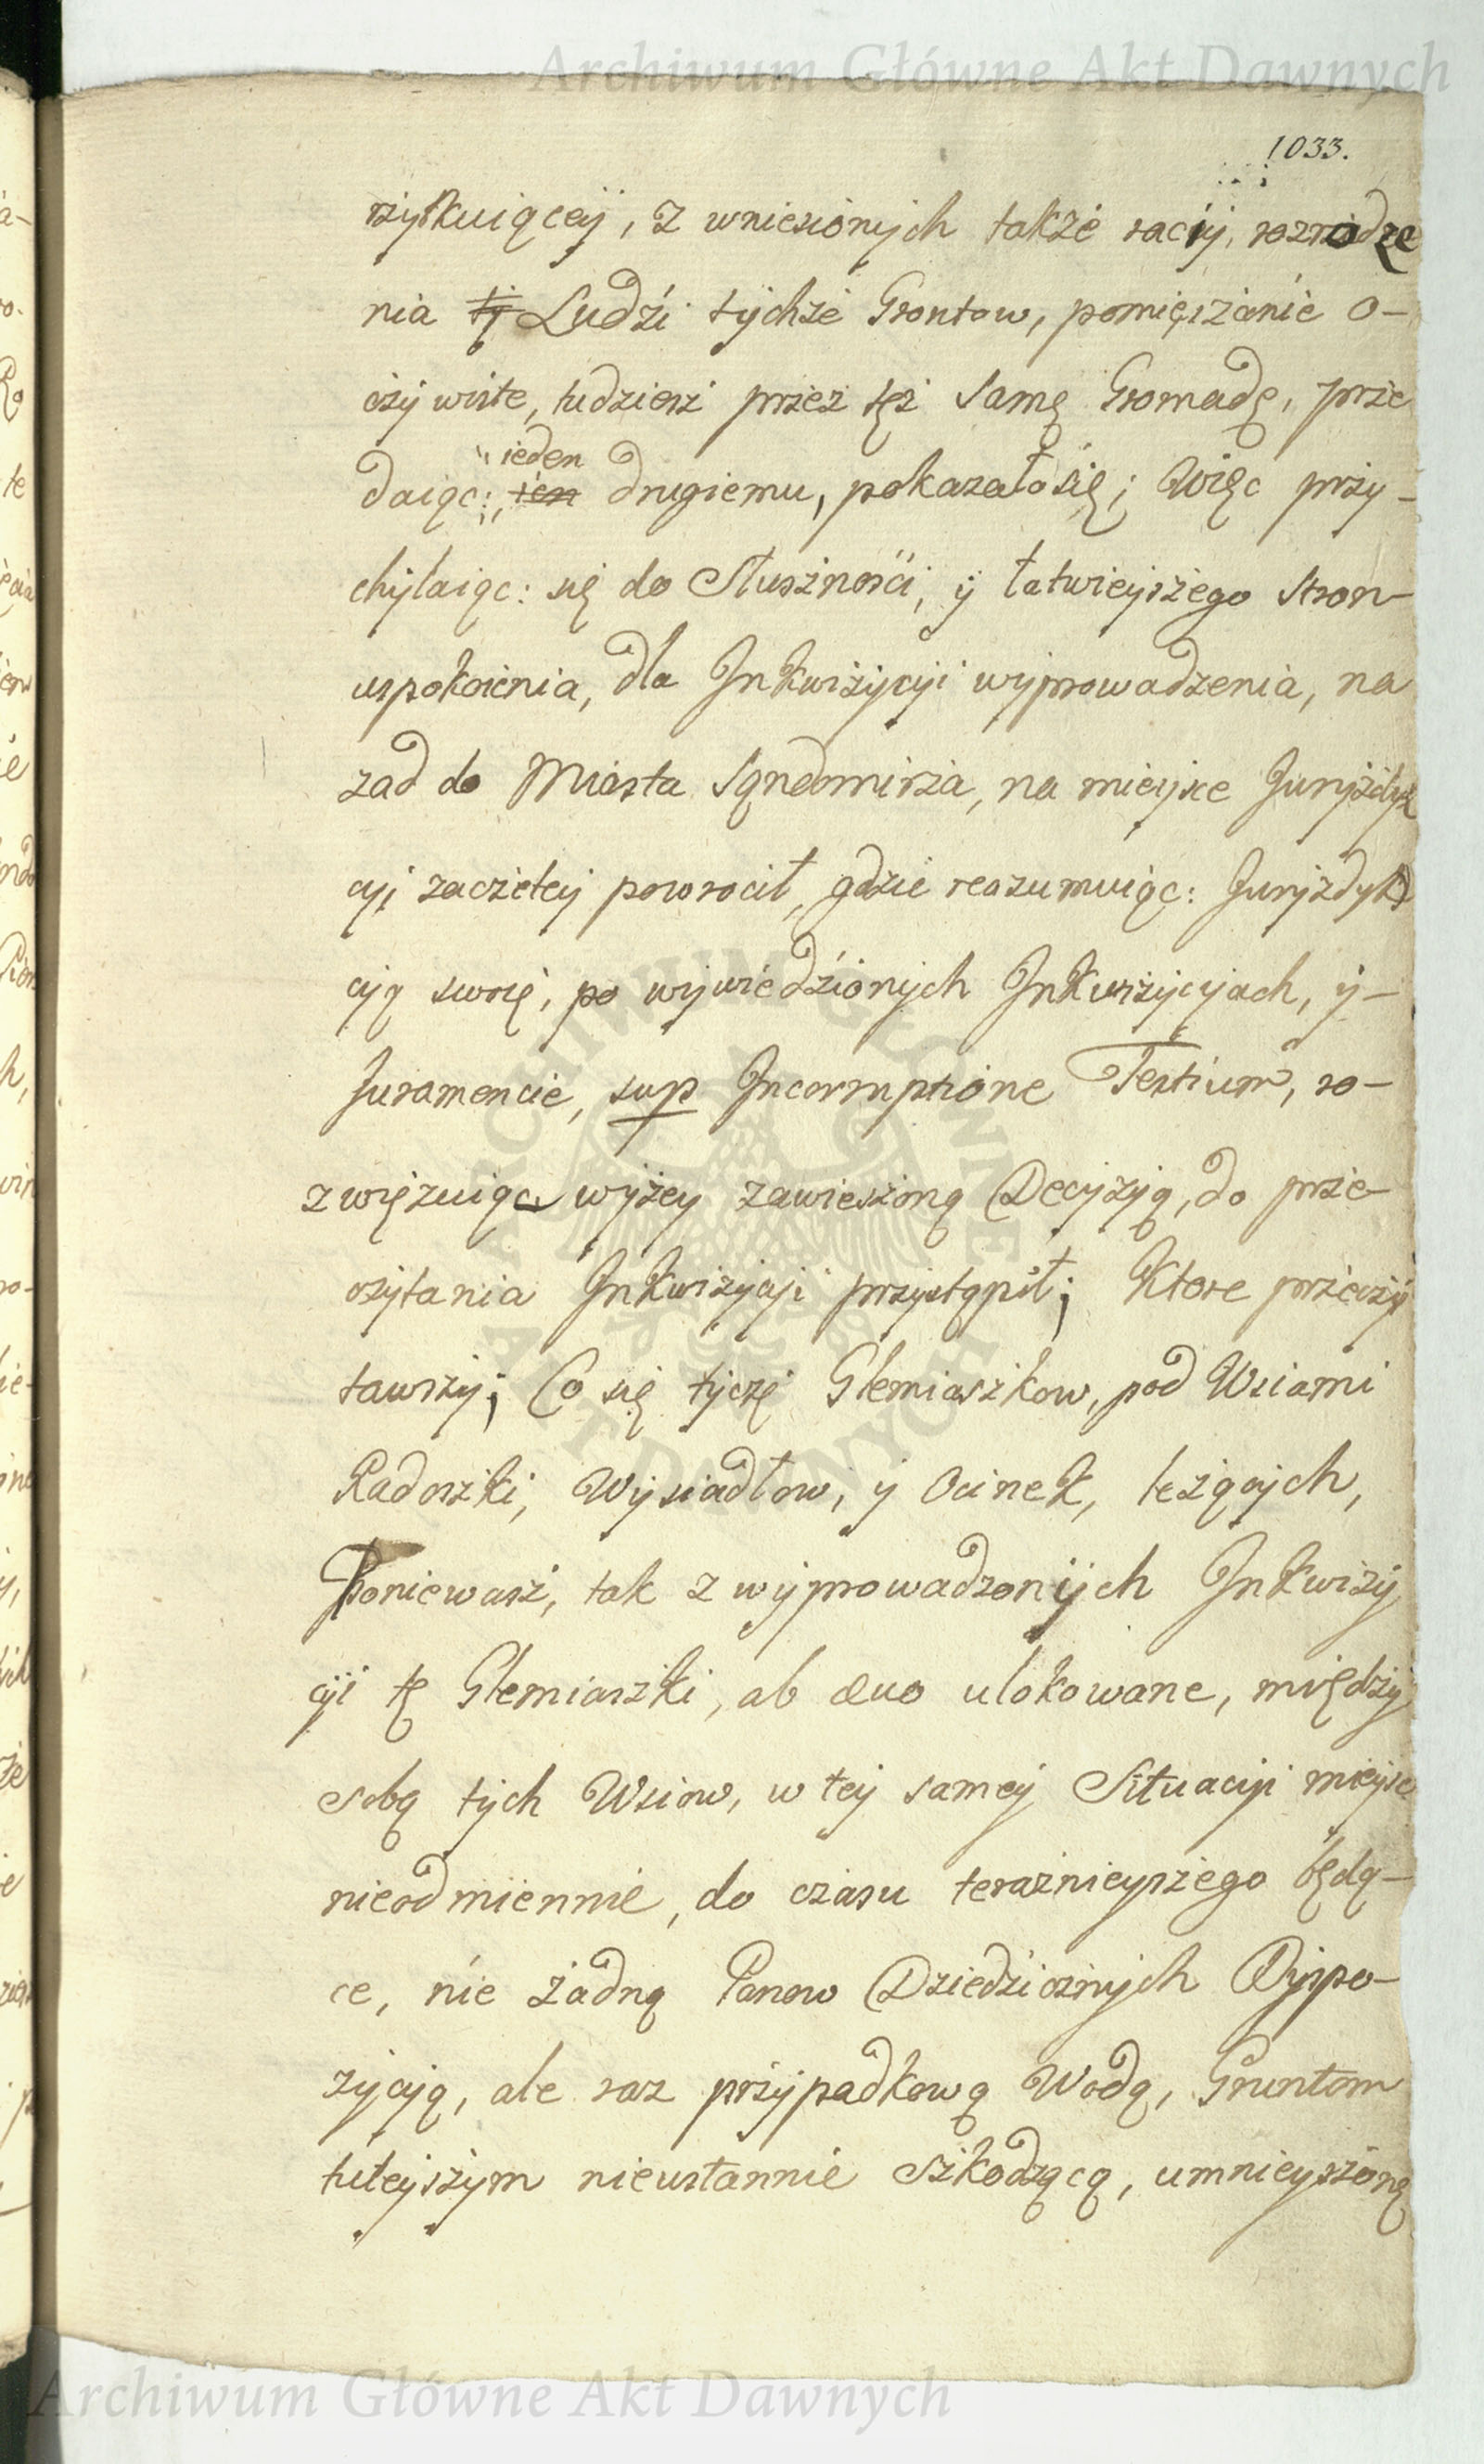 Archiwum Główne Akt Dawnych
1033.
rzystkuiącey, z wniesionych także racyi, rozrodze
nia tÿ Ludźi tychże Grontow, pomięszanie o-
czywiste, tudziesz przez tęż samę Gromadę, prze
daiąc: ieden ien drugiemu, pokazało się; Więc przy-
chylaiąc: się do Słuszności, ÿ łatwieyszego stron-
uspokoienia, dla Inkwizycyi wyprowadzenia, na
zad do Miasta Sąndomirza, na mieysce Juryzdyk
cyi zaczętey powrocił, gdzie reazumuiąc: Juryzdyk
cyą swoię, po wywiedźionych Inkwizycyach, ÿ-
Juramencie, sup Incorruptione Testium, ro-
zwięzuiąc wyżey zawieszoną Decyzyą, do prze-
czytania Inkwizycyi przystąpił; Ktore przeczy
tawszy; Co się tyczę Glemiaszkow, pod Wsiami
Radoszki, Wysiadłow, y Ocinek, leżących,
Poniewasz, tak z wyprowadzonych Inkwizy
cyi tę Glemiaszki, ab ævo ulokowane, między
sobą tych Wsiow, w tey samey Situacyi mieysc
nieodmiennie, do czasu teraznieyszego będą-
ce, nie żadną Panow Dziedzicznych Dyspo-
zycyą, ale raz przypadkową Wodą, Gruntom
tuteyszym nieustannie szkodzącą, umnieyszoną
ARCHIWUM GŁÓWNE AKT DAWNYCH
Archiwum Główne Akt Dawnych